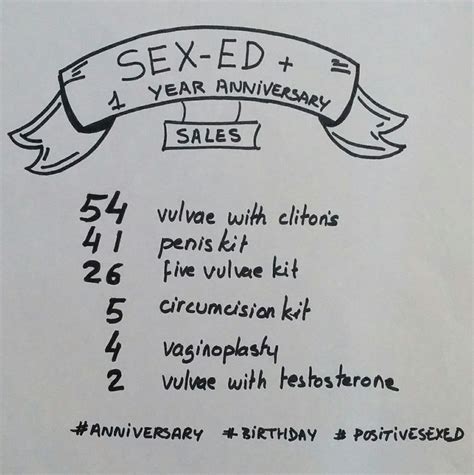 SEX-ED +
1 YEAR ANNIVERSARY
SALES
54 vulvae with clitoris
41 penis kit
26 five vulvae kit
5 circumcision kit
4 vaginoplasty
2 vulvae with testosterone
#ANNIVERSARY #BIRTHDAY #POSITIVESEXED